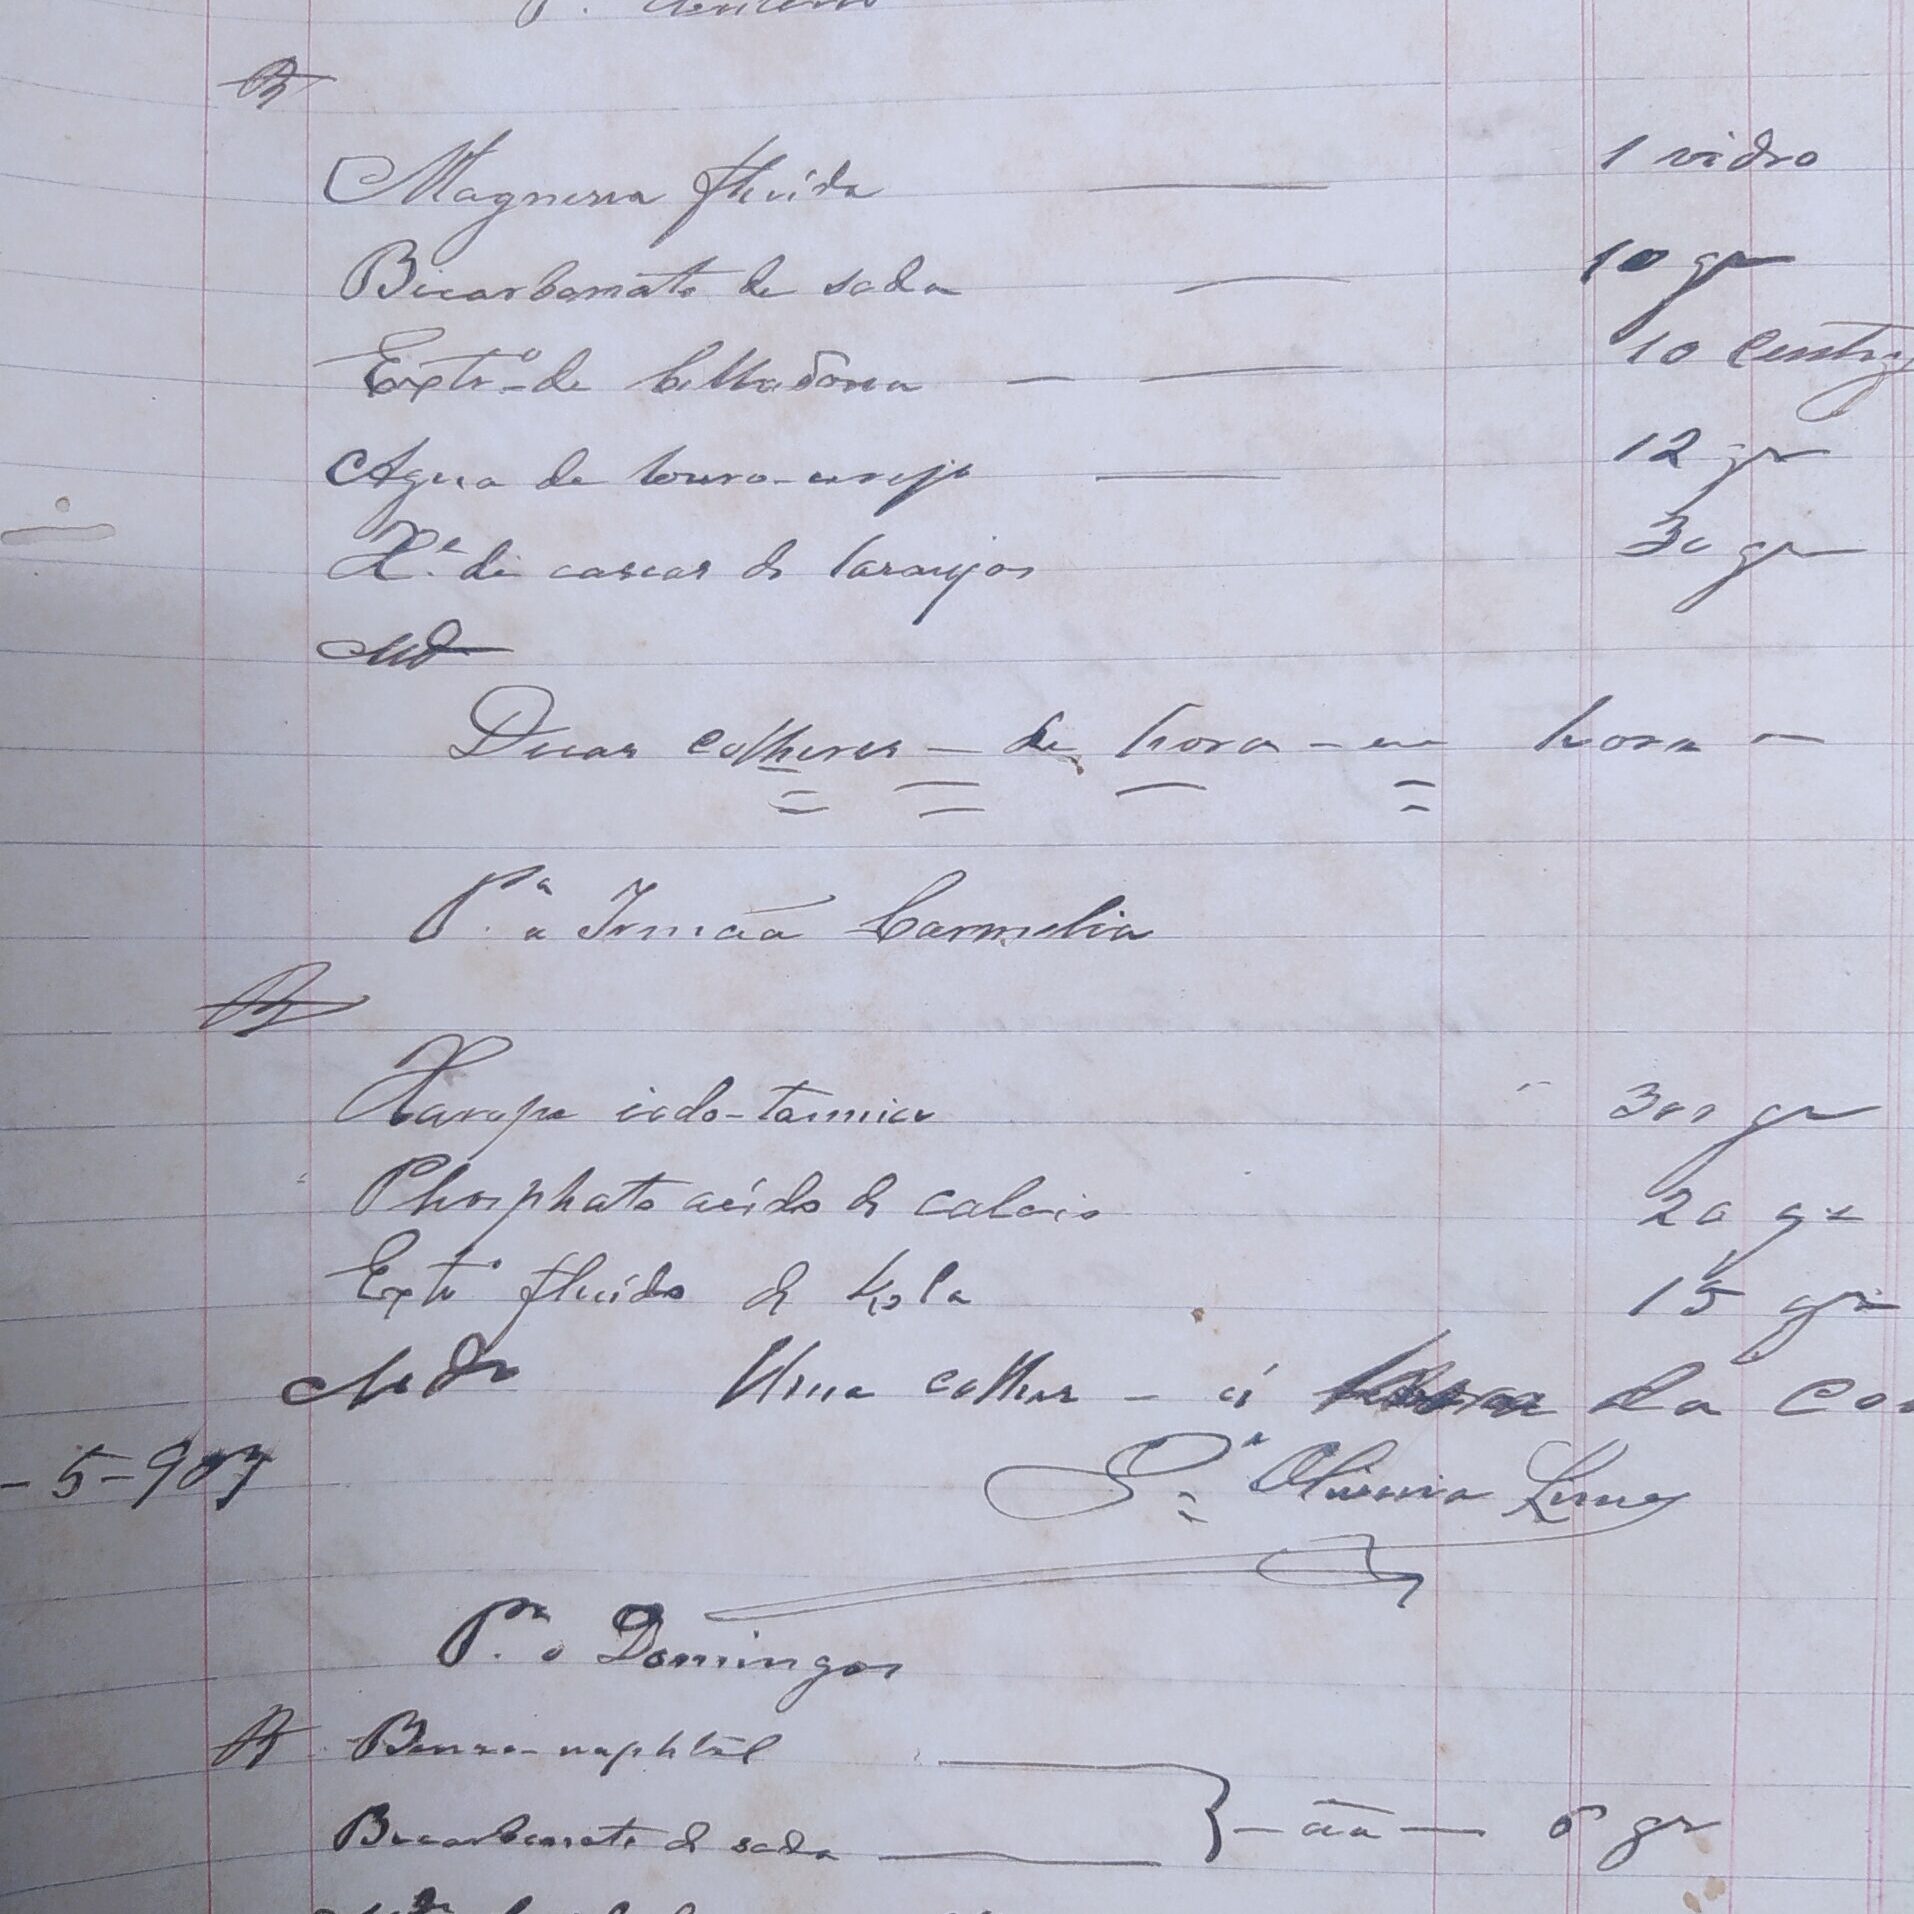 Rx
Magnesia fluida — 1 vidro
Bicarbonato de soda — 10 gr
Extrº de belladona — — 10 Centig
Agua de louro-cerejo — 12 gr
Xe. de cascas de laranjas 30 gr
Md
Duas colheres — de hora — em hora —
Pª a Irmãa Carmelia
Rx
Xarope iodo-tannico 300 gr
Phosphato acido de calcio 20 gr
Extº fluido de Kola 15 gr
Mdr Uma colher — á da
- 5-907
Oliveira Lima
Pª o Domingos
Rx Benzo-naphtol
Bicarbonato de soda } — ãa — 6 gr